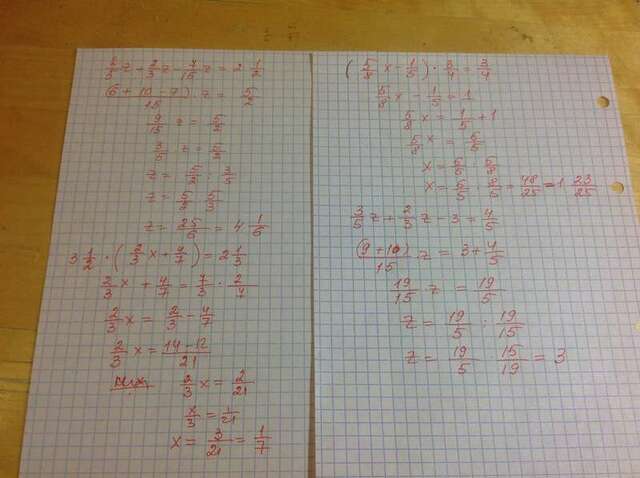 2/5 z + 2/3 z - 7/15 z = 2 1/2
(6 + 10 - 7)/15 z = 5/2
9/15 z = 5/2
3/5 z = 5/2
z = 5/2 : 3/5
z = 5/2 · 5/3
z = 25/6 = 4 1/6
3 1/2 · (2/3 x + 4/7) = 2 1/3
2/3 x + 4/7 = 7/3 · 2/7
2/3 x = 2/3 - 4/7
2/3 x = (14 - 12)/21
2/3 x = 2/21
x/3 = 1/21
x = 3/21 = 1/7
(5/8 x - 1/5) · 3/4 = 3/4
5/8 x - 1/5 = 1
5/8 x = 1/5 + 1
5/8 x = 6/5
x = 6/5 : 5/8
x = 6/5 · 8/5 = 48/25 = 1 23/25
3/5 z + 2/3 z - 3 = 4/5
(9 + 10)/15 z = 3 + 4/5
19/15 · z = 19/5
z = 19/5 : 19/15
z = 19/5 · 15/19 = 3